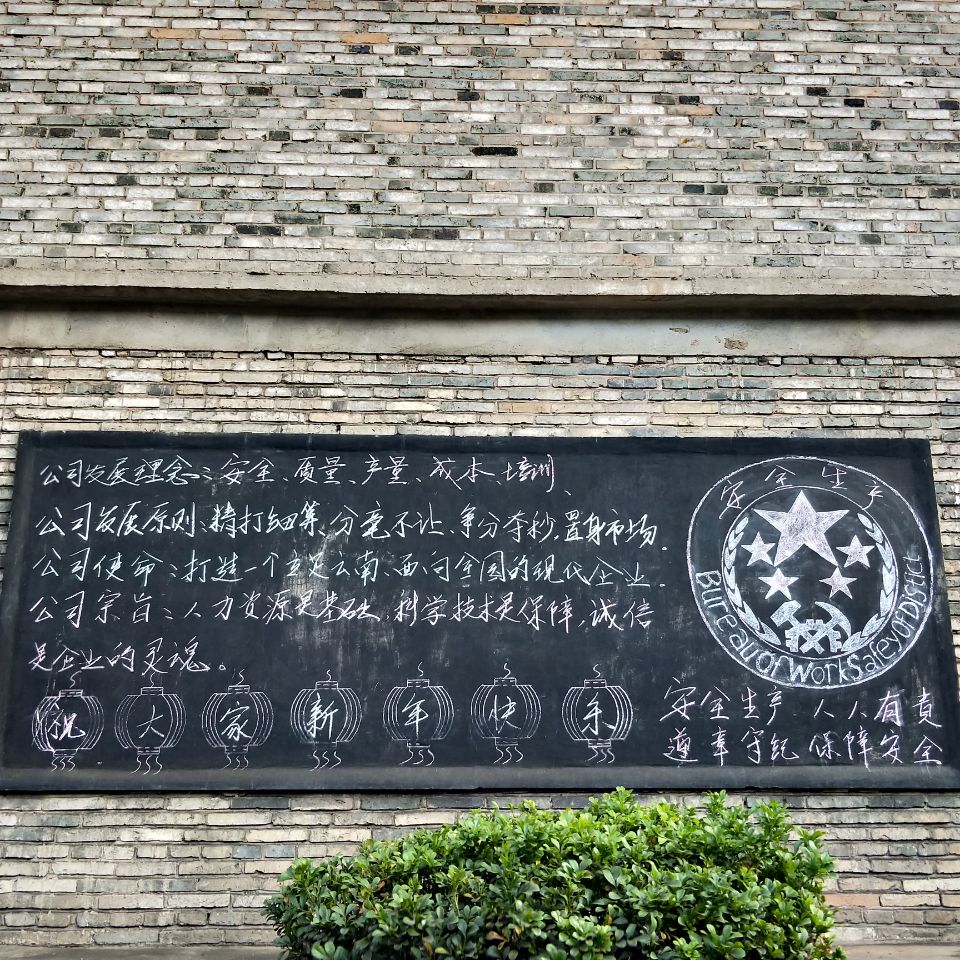 公司发展理念：安全、质量、产量、成本、培训、
公司发展原则：精打细算、分毫不让、争分夺秒，置身市场。
公司使命：打造一个立足云南、面向全国的现代企业．
公司宗旨：人力资源是基础，科学技术是保障，诚信
是企业的灵魂。
祝大家新年快乐
安全生产
Bureau of Work Safety of District
安全生产 人人有责
遵章守纪 保障安全